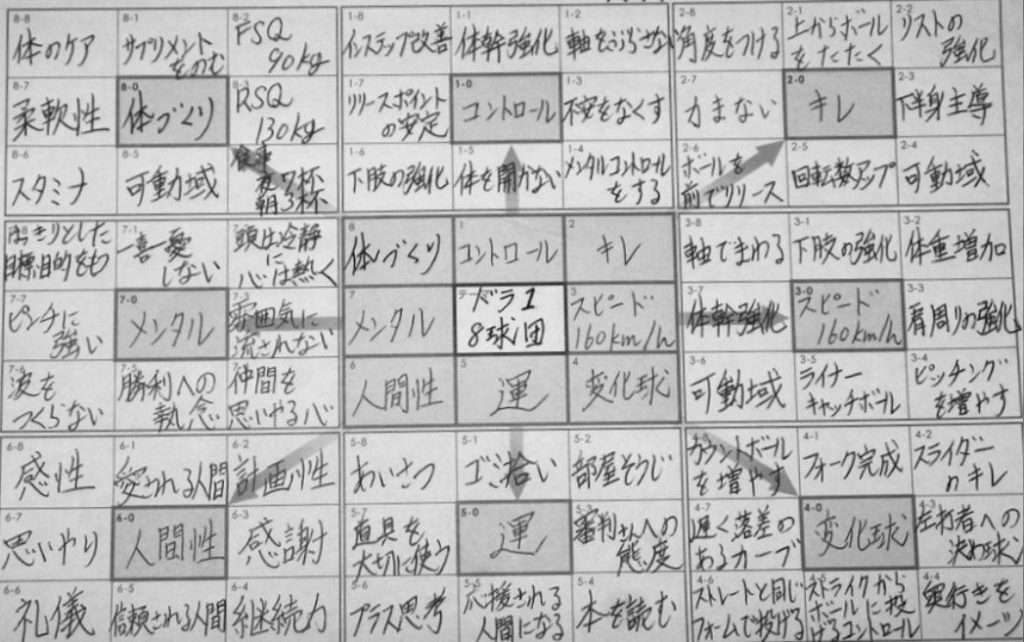 8-8
体のケア
8-1
サプリメント
をのむ
8-2
FSQ
90kg
8-7
柔軟性
8-0
体づくり
8-3
RSQ
130kg
8-6
スタミナ
8-5
可動域
食事
夜7杯
朝3杯
1-8
インステップ改善
1-1
体幹強化
1-2
軸をぶらさない
1-7
リリースポイント
の安定
1-0
コントロール
1-3
不安をなくす
1-6
下肢の強化
1-5
体を開かない
1-4
メンタルコントロール
をする
2-8
角度をつける
2-1
上からボール
をたたく
2-2
リストの
強化
2-7
力まない
2-0
キレ
2-3
下半身主導
2-6
ボールを
前でリリース
2-5
回転数アップ
2-4
可動域
はっきりとした
目標、目的をもつ
7-1
一喜一憂
しない
頭は冷静に
心は熱く
7-7
ピンチに
強い
7-0
メンタル
7-3
雰囲気に
流されない
7-6
波を
つくらない
7-5
勝利への
執念
7-4
仲間を
思いやる心
8
体づくり
1
コントロール
2
キレ
7
メンタル
9
ドラ1
8球団
3
スピード
160km/h
6
人間性
5
運
4
変化球
3-8
軸でまわる
3-1
下肢の強化
3-2
体重増加
3-7
体幹強化
3-0
スピード
160km/h
3-3
肩周りの強化
3-6
可動域
3-5
ライナー
キャッチボール
3-4
ピッチング
を増やす
6-8
感性
6-1
愛される人間
6-2
計画性
6-7
思いやり
6-0
人間性
6-3
感謝
6-6
礼儀
6-5
信頼される人間
6-4
継続力
5-8
あいさつ
5-1
ゴミ拾い
5-2
部屋そうじ
5-7
道具を
大切に使う
5-0
運
5-3
審判さんへの
態度
5-6
プラス思考
5-5
応援される
人間になる
5-4
本を読む
4-8
カウントボール
を増やす
4-1
フォーク完成
4-2
スライダー
のキレ
4-7
遅く落差の
あるカーブ
4-0
変化球
4-3
左打者への
決め球
4-6
ストレートと同じ
フォームで投げる
4-5
ストライクから
ボールに投
げるコントロール
4-4
奥行きを
イメージ